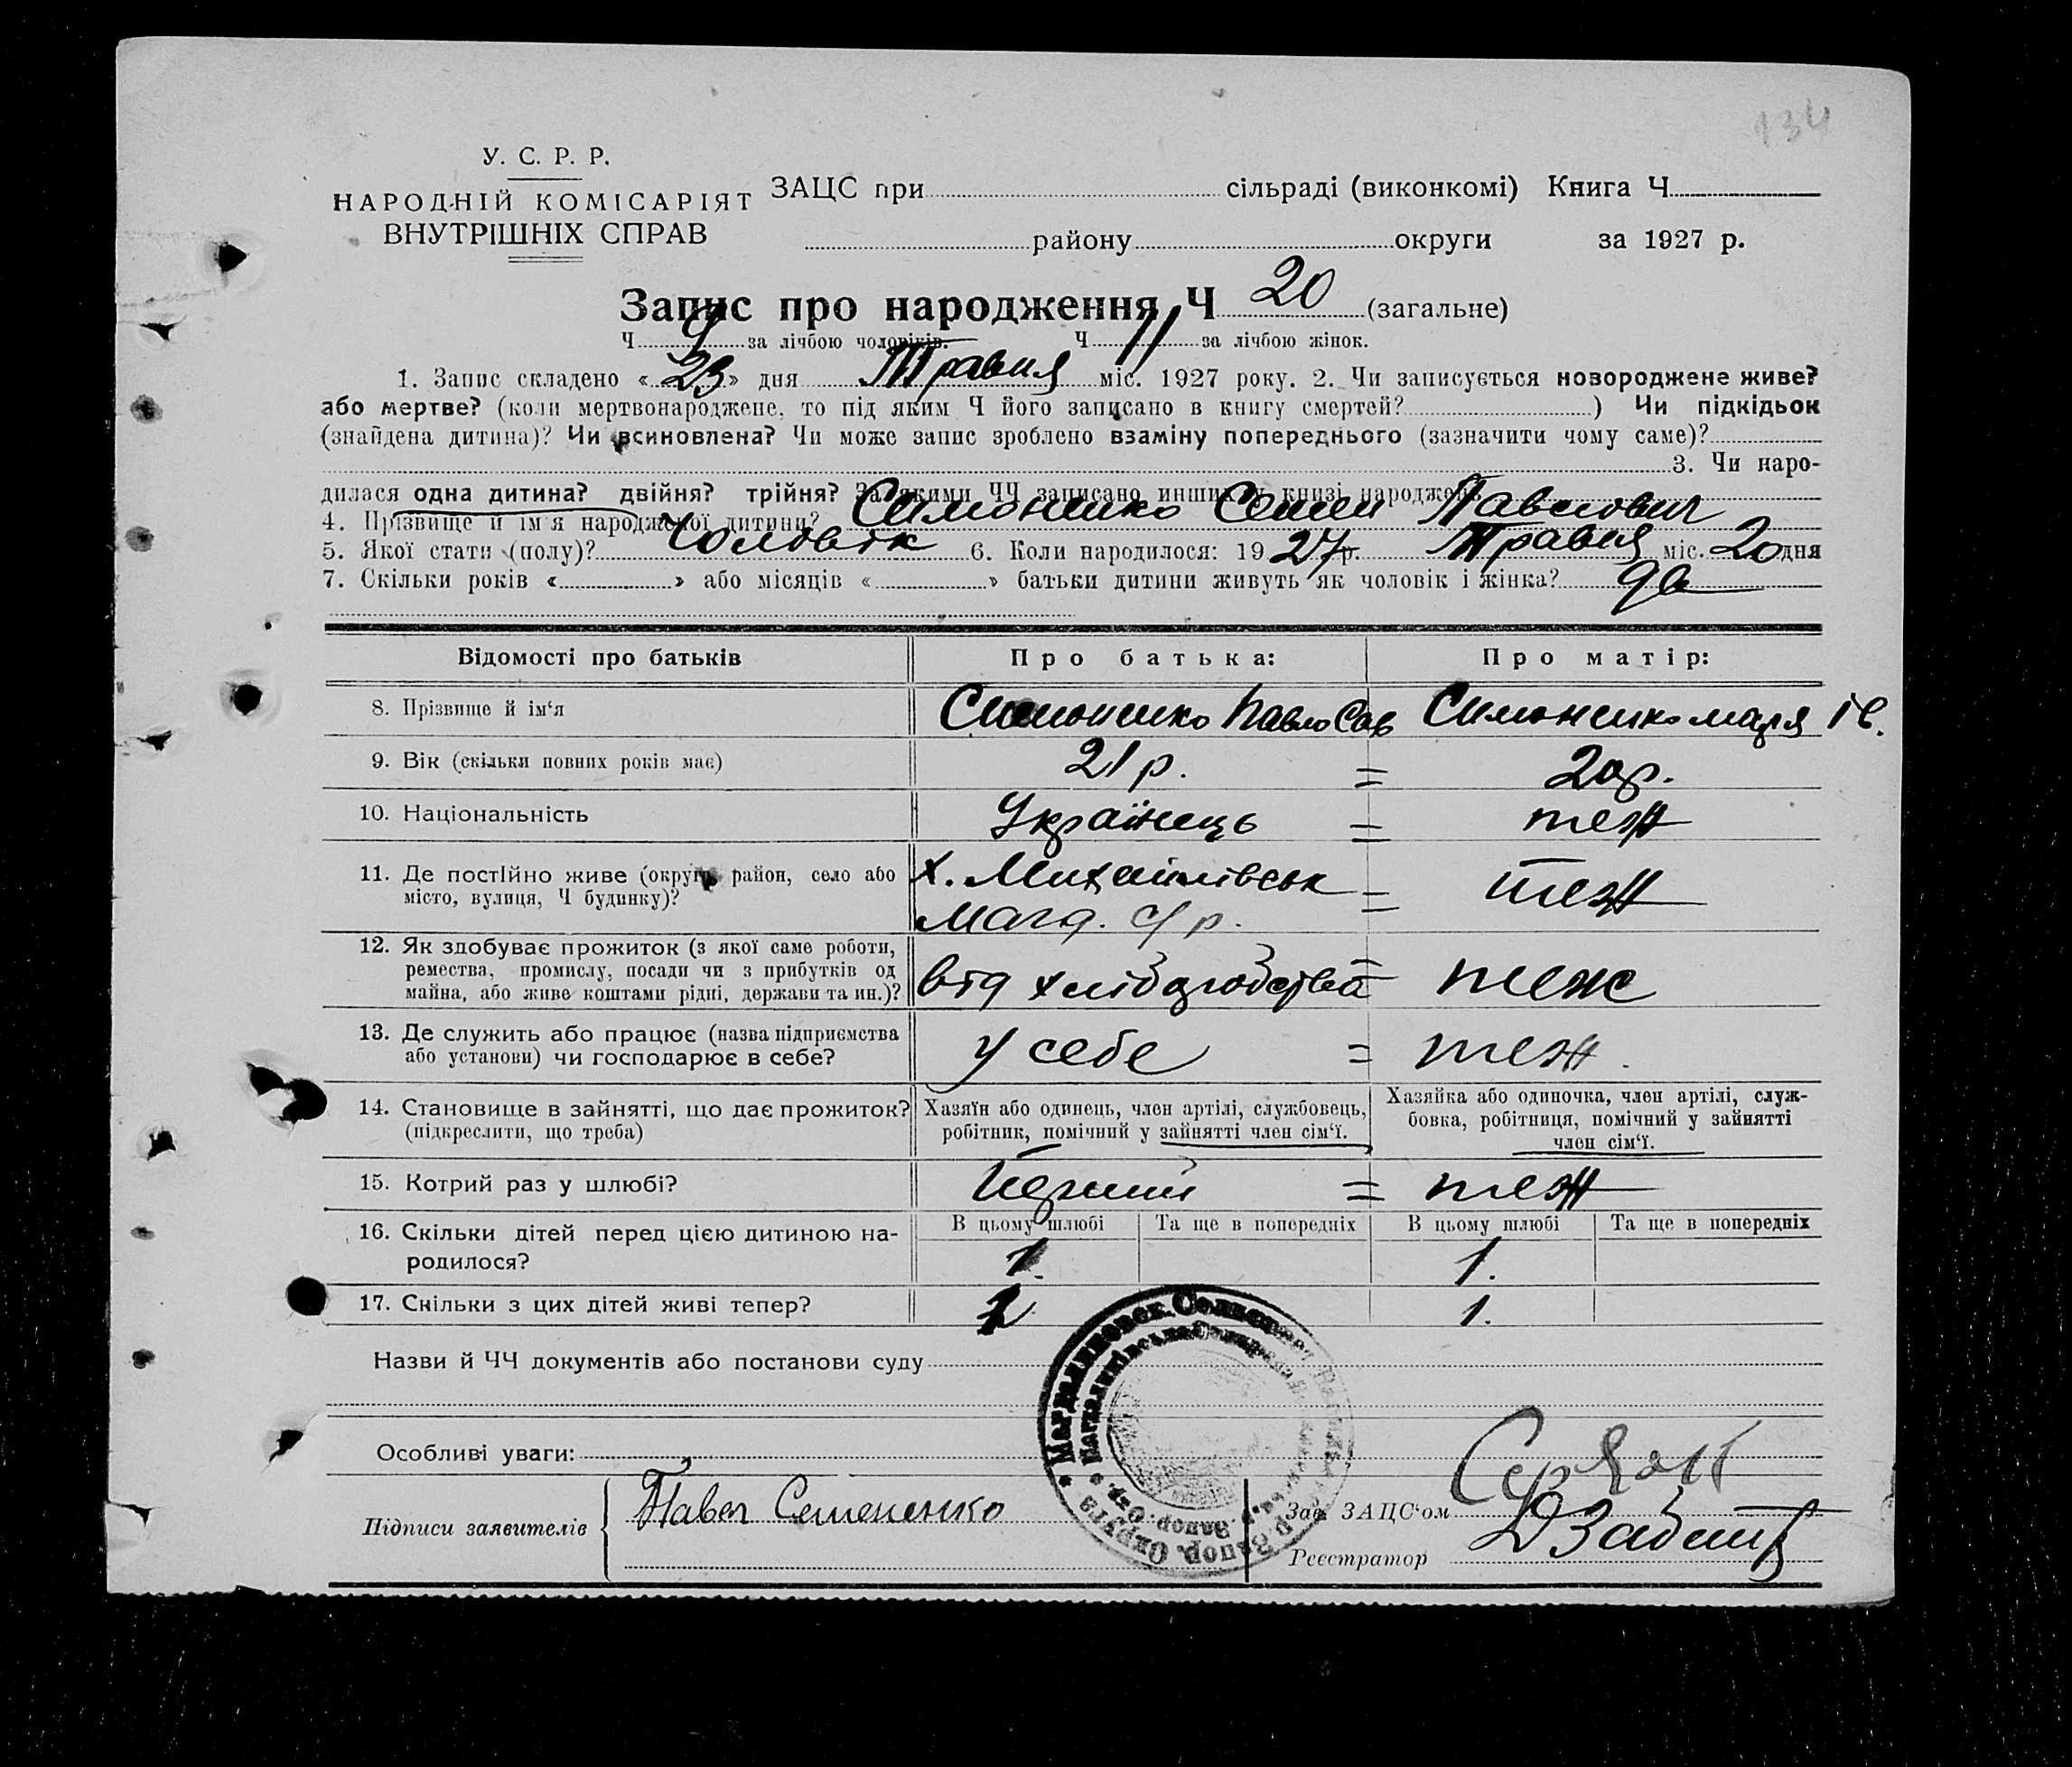 134
У. С. Р. Р.
НАРОДНІЙ КОМІСАРІЯТ
ВНУТРІШНІХ СПРАВ
ЗАЦС при сільраді (виконкомі) Книга Ч
району округи за 1927 р.
Запис про народження Ч 20 (загальне)
Ч 9 за лічбою чоловіків. Ч 11 за лічбою жінок.
1. Запис складено « 23 » дня Травня міс. 1927 року. 2. Чи записується новороджене живе?
або мертве? (коли мертвонароджене, то під яким Ч його записано в книгу смертей? ) Чи підкідьок
(знайдена дитина)? Чи всиновлена? Чи може запис зроблено взаміну попереднього (зазначити чому саме)?
3. Чи наро-
дилася одна дитина? двійня? трійня? За якими ЧЧ записано инших у книзі народжень
4. Прізвище й ім'я народженої дитини? Симоненко Семен Павлович
5. Якої стати (полу)? Чоловік 6. Коли народилося: 1927 р. Травня міс. 20 дня
7. Скільки років « » або місяців « » батьки дитини живуть як чоловік і жінка? да
Відомості про батьків Про батька: Про матір:
8. Прізвище й ім'я Симоненко Павло Сав Симоненко Марія Ів.
9. Вік (скільки повних років має) 21 р. = 20 р.
10. Національність Українець = теж
11. Де постійно живе (округа, район, село або місто, вулиця, Ч будинку)? х. Михайлівськ = теж
Магд. с/р.
12. Як здобуває прожиток (з якої саме роботи,
ремества, промислу, посади чи з прибутків од
майна, або живе коштами рідні, держави та ин.)? від хліборобства = теж
13. Де служить або працює (назва підприємства
або установи) чи господарює в себе? у себе = теж.
14. Становище в зайнятті, що дає прожиток?
(підкреслити, що треба)
Хазяїн або одинець, член артілі, службовець,
робітник, помічний у зайнятті член сім'ї.
Хазяйка або одиночка, член артілі, служ-
бовка, робітниця, помічний у зайнятті
член сім'ї.
15. Котрий раз у шлюбі? Перший = теж
В цьому шлюбі Та ще в попередніх В цьому шлюбі Та ще в попередніх
16. Скільки дітей перед цією дитиною на-
родилося? 1. 1.
17. Скільки з цих дітей живі тепер? 1 1.
Назви й ЧЧ документів або постанови суду
Особливі уваги:
Підписи заявителів Павел Семененко
Зав. ЗАЦС'ом
Реєстратор